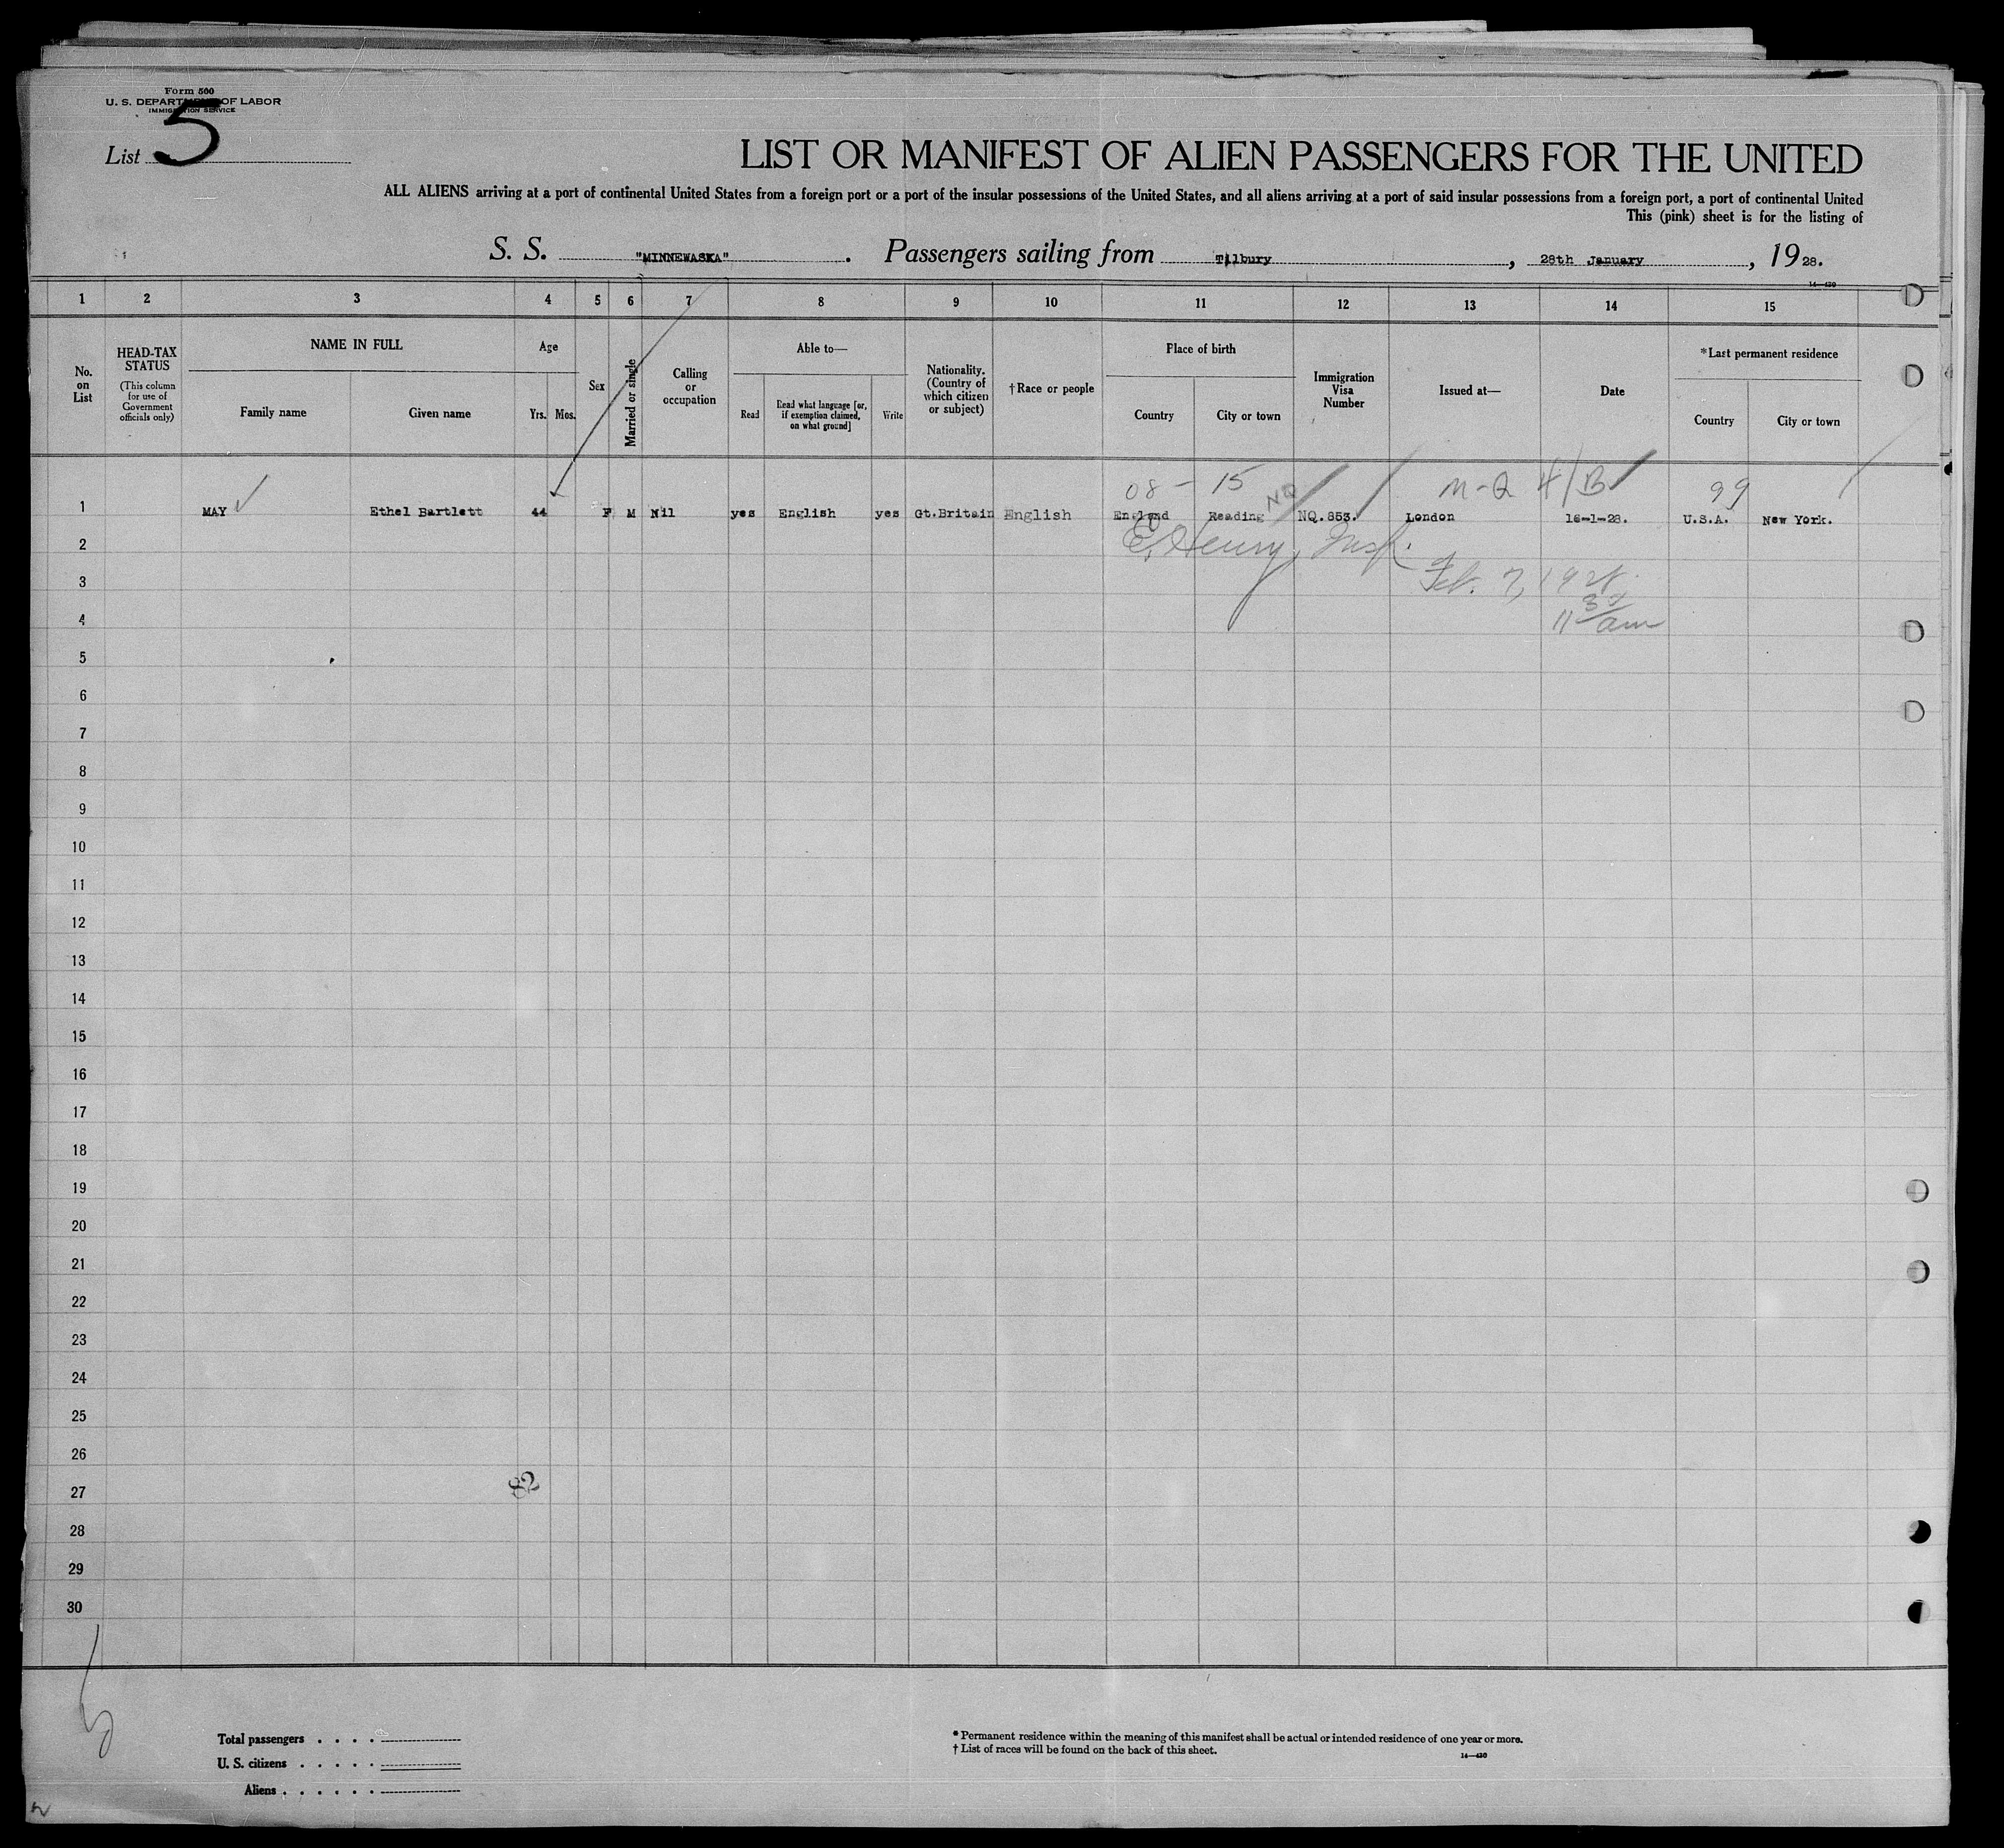 Form 500
U. S. DEPARTMENT OF LABOR
IMMIGRATION SERVICE
List 5
LIST OR MANIFEST OF ALIEN PASSENGERS FOR THE UNITED
ALL ALIENS arriving at a port of continental United States from a foreign port or a port of the insular possessions of the United States, and all aliens arriving at a port of said insular possessions from a foreign port, a port of continental United
This (pink) sheet is for the listing of
S. S. "MINNEWASKA". Passengers sailing from Tilbury, 28th January, 1928.
14—430
1 2 3 4 5 6 7 8 9 10 11 12 13 14 15
No. on List
HEAD-TAX STATUS (This column for use of Government officials only)
NAME IN FULL
Family name Given name
Age
Yrs. Mos.
Sex
Married or single
Calling or occupation
Able to—
Read Read what language [or, if exemption claimed, on what ground] Write
Nationality. (Country of which citizen or subject)
†Race or people
Place of birth
Country City or town
Immigration Visa Number
Issued at—
Date
*Last permanent residence
Country City or town
08 - 15 NQ M-Q 4/B 99
1 MAY Ethel Bartlett 44 F M Nil yes English yes Gt.Britain English England Reading NQ.853. London 16-1-28. U.S.A. New York.
2 E. Henry, Insp.
3 Feb. 7, 1928
4 11 30 am
5
6
7
8
9
10
11
12
13
14
15
16
17
18
19
20
21
22
23
24
25
26
27 82
28
29
30
Total passengers . . . .
U. S. citizens . . . . .
Aliens . . . . . .
* Permanent residence within the meaning of this manifest shall be actual or intended residence of one year or more.
† List of races will be found on the back of this sheet.
14—430